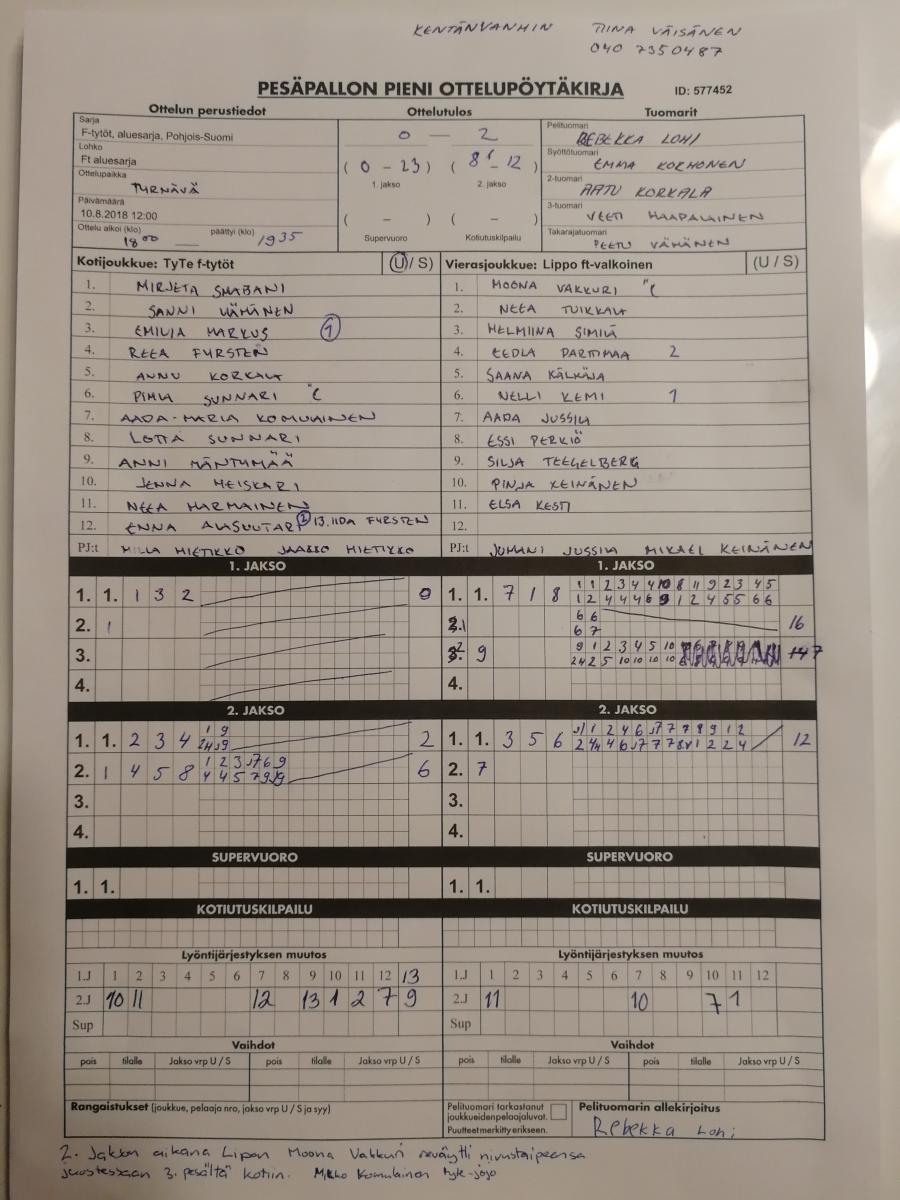 KENTÄNVANHIN TIINA VÄISÄNEN
040 7350487
PESÄPALLON PIENI OTTELUPÖYTÄKIRJA ID: 577452
Ottelun perustiedot Ottelutulos Tuomarit
Sarja
F-tytöt, aluesarja, Pohjois-Suomi
Lohko
Ft aluesarja
Ottelupaikka
TYRNÄVÄ
Päivämäärä
10.8.2018 12:00
Ottelu alkoi (klo) 18 00 päättyi (klo) 1935
0 — 2
( 0 - 23 ) ( 8 - 12 )
1. jakso 2. jakso
( - ) ( - )
Supervuoro Kotiutuskilpailu
Pelituomari
REBEKKA LOHI
Syöttötuomari
EMMA KORHONEN
2-tuomari
AATU KORKALA
3-tuomari
VEETI HAAPALAINEN
Takarajatuomari
PEETU VÄHÄNEN
Kotijoukkue: TyTe f-tytöt (U / S)
1. MIRJETA SHABANI
2. SANNI VÄHÄNEN
3. EMILIA MARKUS 1
4. REEA FYRSTEN
5. ANNU KORKALA
6. PIHLA SUNNARI "C
7. AADA-MARIA KOMULAINEN
8. LOTTA SUNNARI
9. ANNI MÄNTYMÄÄ
10. JENNA HEISKARI
11. NEEA HARMAINEN
12. ENNA ALASUUTARI 2 13. IIDA FYRSTEN
PJ:t MILLA HIETIKKO JAAKKO HIETIKKO
Vierasjoukkue: Lippo ft-valkoinen (U / S)
1. MOONA VAKKURI "C
2. NEEA TUIKKALA
3. HELMIINA SIMILÄ
4. EEDLA PARTIMAA 2
5. SAANA KÄLKÄJÄ
6. NELLI KEMI 1
7. AADA JUSSILA
8. ESSI PERKIÖ
9. SILJA TEEGELBERG
10. PINJA KEINÄNEN
11. ELSA KESTI
12.
PJ:t JUHANI JUSSILA MIKAEL KEINÄNEN
1. JAKSO 1. JAKSO
1. 1. 1 3 2 0
2. 1
3.
4.
1. 1. 7 1 8
1 1 2 3 4 4 10 8 11 9 2 3 4 5
1 2 4 4 4 6 9 1 2 4 5 5 6 6
6 6
6 7
16
9
9 1 2 3 4 5 10
7
4.
2. JAKSO 2. JAKSO
1. 1. 2 3 4 2
2. 1 4 5 8 6
3.
4.
1. 1. 3 5 6 12
2. 7
3.
4.
SUPERVUORO SUPERVUORO
1. 1. 1. 1.
KOTIUTUSKILPAILU KOTIUTUSKILPAILU
Lyöntijärjestyksen muutos Lyöntijärjestyksen muutos
1.J 1 2 3 4 5 6 7 8 9 10 11 12 13
2.J 10 11 12 13 1 2 7 9
Sup
1.J 1 2 3 4 5 6 7 8 9 10 11 12
2.J 11 10 7 1
Sup
Vaihdot Vaihdot
pois tilalle Jakso vrp U / S pois tilalle Jakso vrp U / S pois tilalle Jakso vrp U / S pois tilalle Jakso vrp U / S
Rangaistukset (joukkue, pelaaja nro, jakso vrp U / S ja syy)
Pelituomari tarkastanut
joukkueidenpelaajaluvat.
Puutteet merkitty erikseen.
Pelituomarin allekirjoitus
Rebekka Lohi
2. Jakson aikana Lipon Moona Vakkuri reväytti nivustaipeensa
juostessaan 3. pesältä kotiin. Mikko Komulainen tyk-jojo